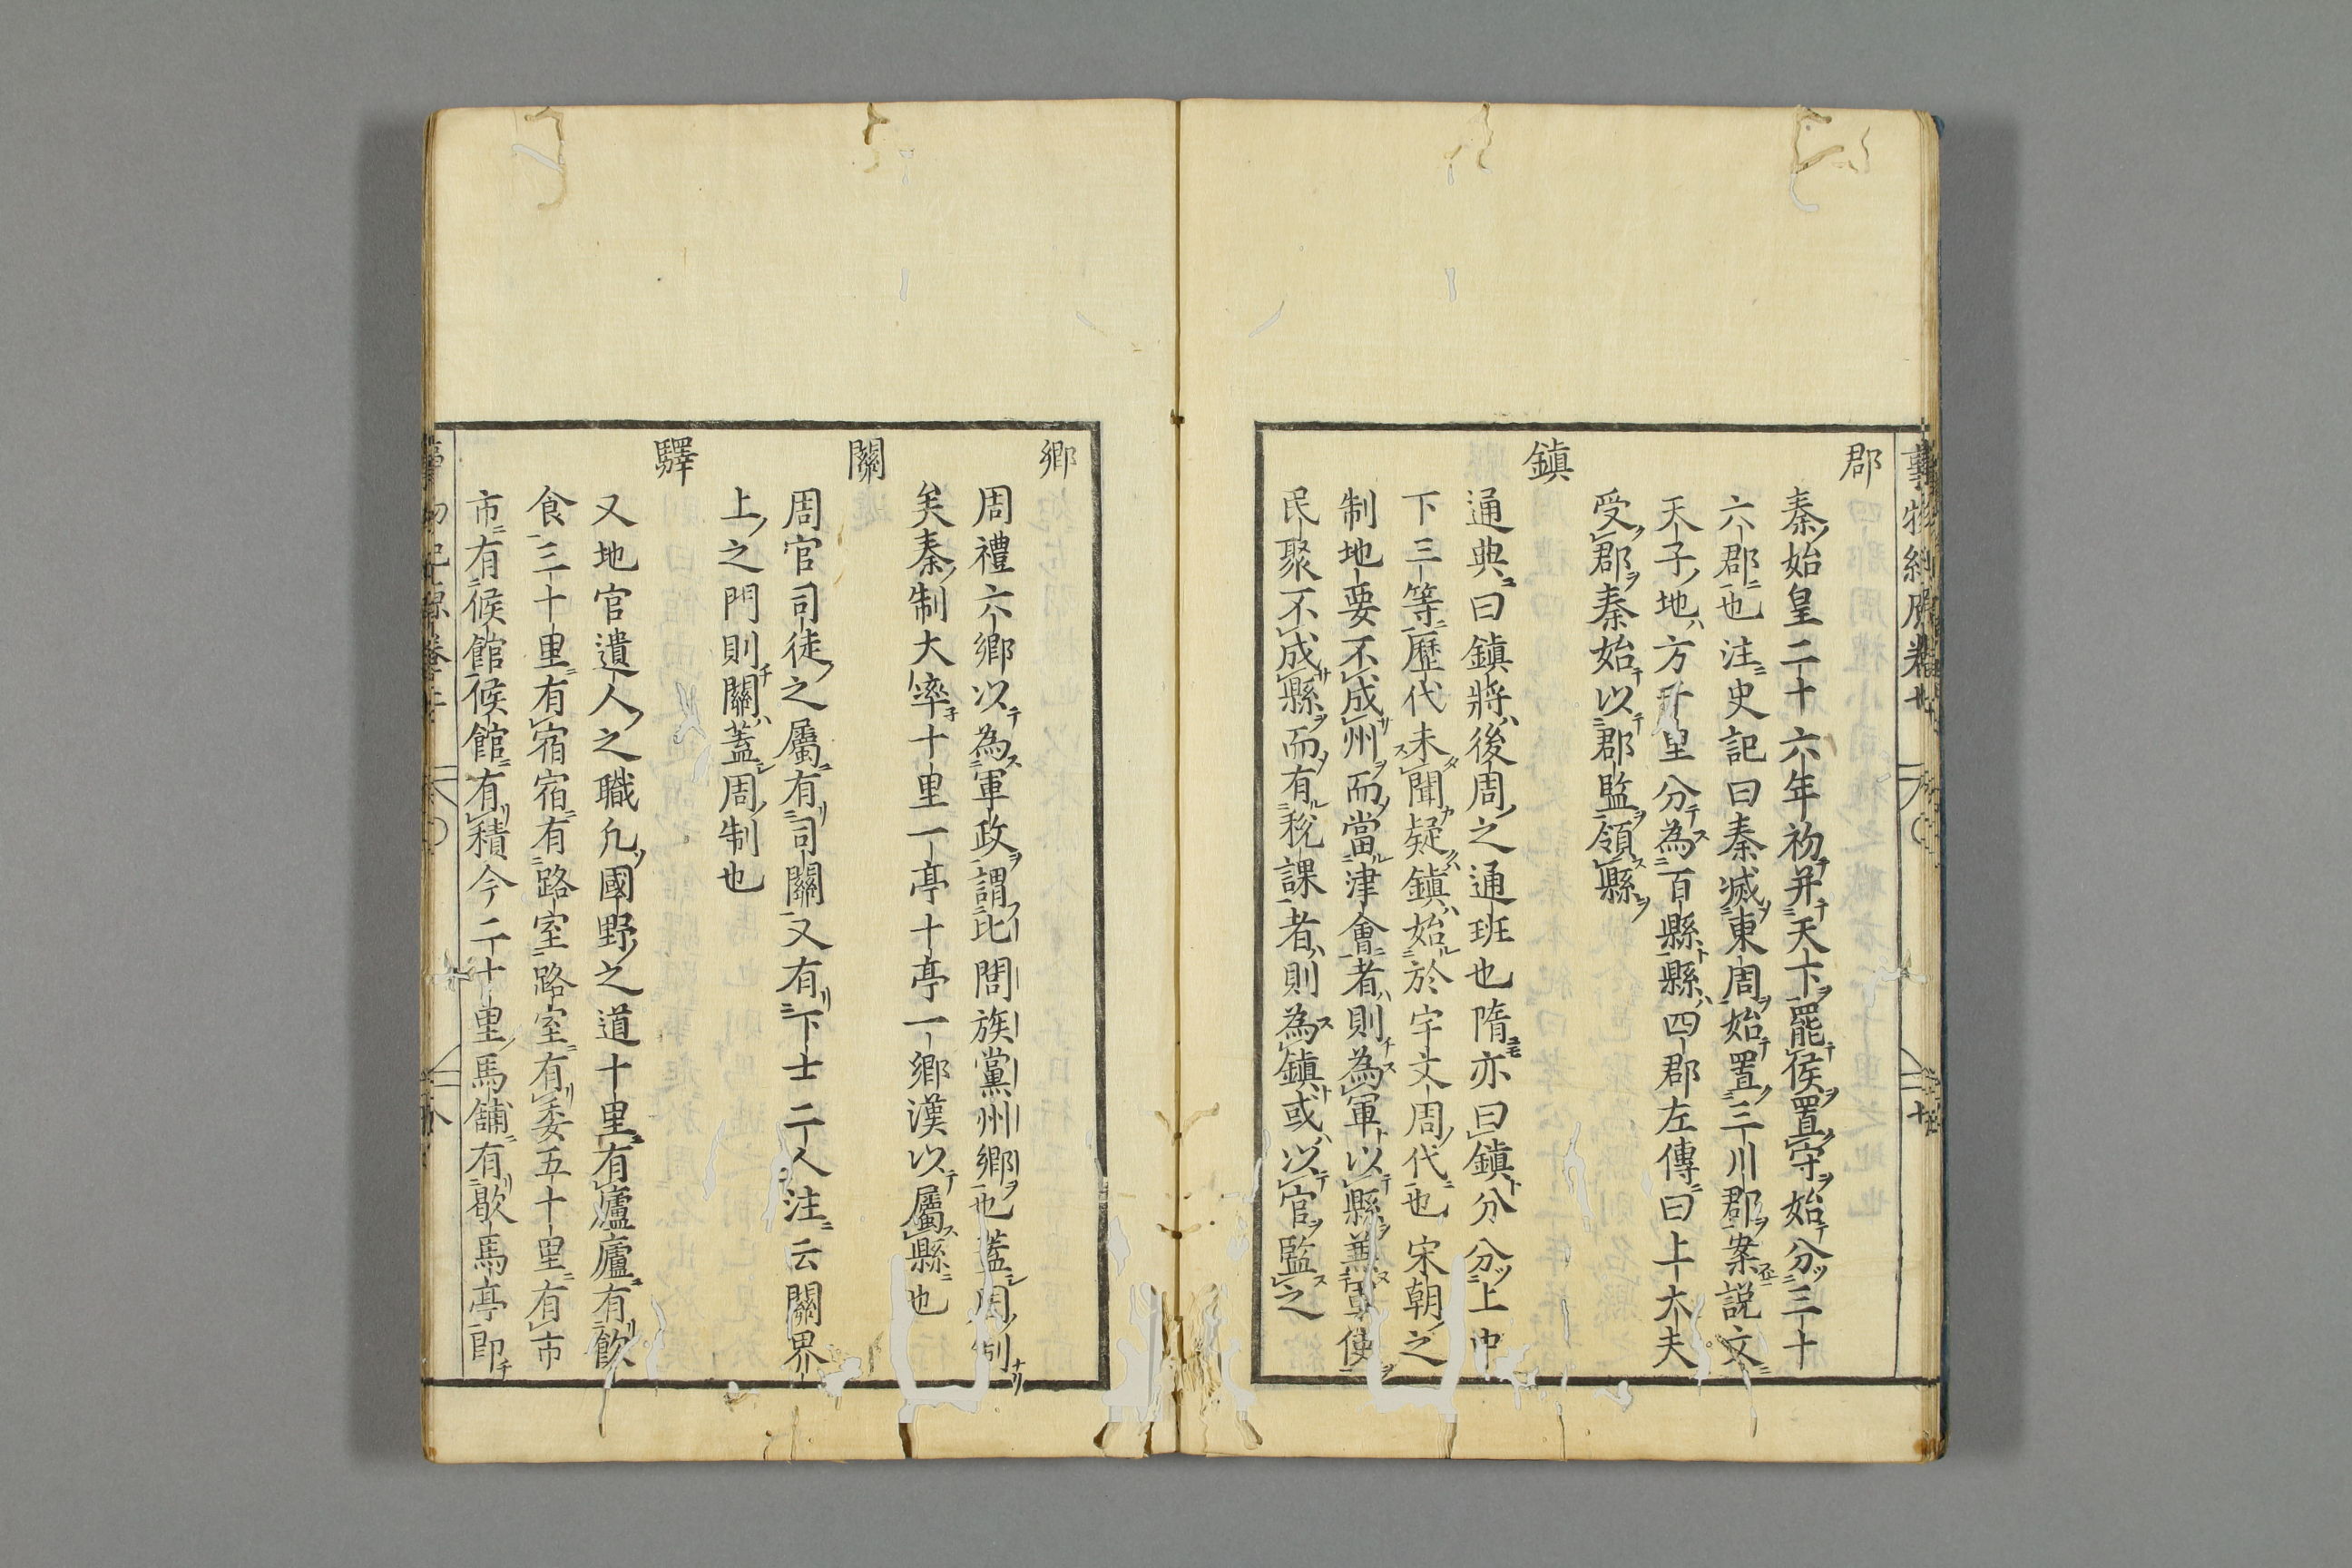 郡
秦始皇二十六年初并天下罷侯置守始分三十
六郡也注史記曰秦滅東周始置三川郡案説文
天子地方千里分為百縣縣四郡左傳曰上大夫
受郡秦始以郡監領縣
鎮
通典曰鎮將後周之通班也隋亦曰鎮分分上中
下三等歴代未聞疑鎮始於宇文周代也宋朝之
制地要不成州而當津會者則為軍以縣兼軍使
民聚不成縣而有税課者則為鎮或以官監之
鄉
周禮六鄉以為軍政謂比閭族黨州鄉也蓋周制
矣秦制大率十里一亭十亭一鄉漢以屬縣也
關
周官司徒之屬有司關又有下士二人注云關界
上之門則關蓋周制也
驛
又地官遺人之職凡國野之道十里有廬廬有飲
食三十里有宿宿有路室路室有委五十里有市
市有候館候館有積今二十里馬舖有歇馬亭即